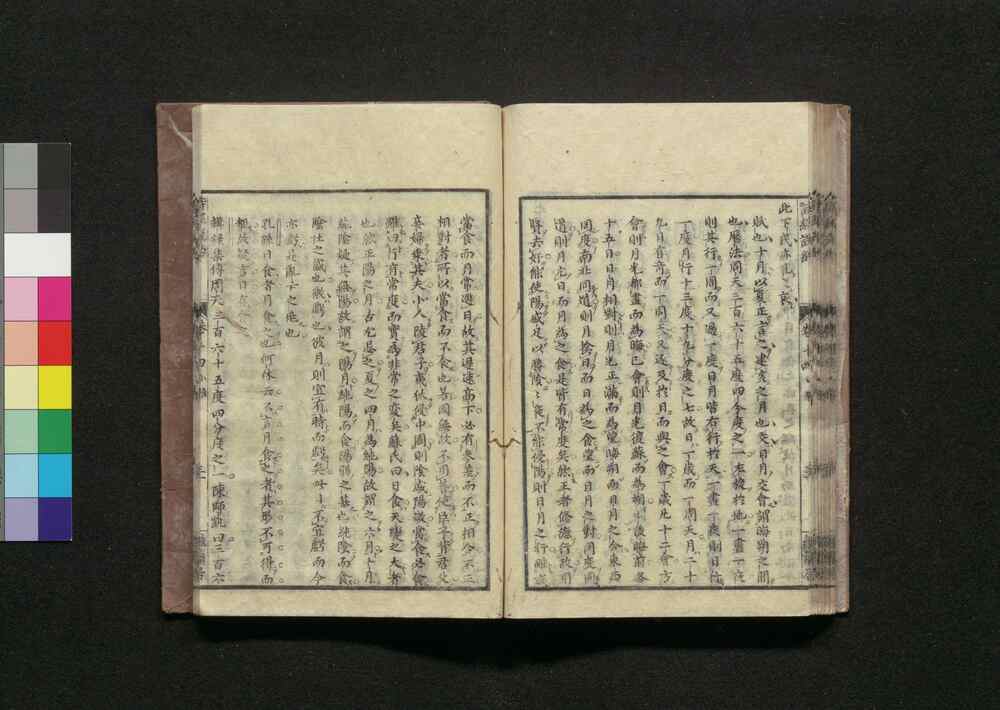 賦也十月以夏正言之建亥之月也交日月交會謂晦朔之間
也曆法周天三百六十五度四分度之一左旋於地一晝一夜
則其行一周而又過一度日月皆右行於天一晝一夜則日行
一度月行十三度十九分度之七故日一歲而一周天月二十
九日有奇而一周天又逐及於日而與之會一歲凡十二會方
會則月光都盡而為晦已會則月光復蘇而為朔朔後晦前各
十五日日月相對則月光正滿而為望晦朔而日月之合東西
同度南北同道則月揜日而日為之食望而日月之對同度同
道則月亢日而月為之食是皆有常度矣然王者修德行政用
賢去奸能使陽盛足以勝陰陰衰不能侵陽則日月之行雖或
當食而月常避日故其遲速高下必有參差而不正相合不正
相對者所以當食而不食也若國無政不用善使臣子背君父
妾婦乘其夫小人陵君子夷狄侵中國則陰盛陽微當食必食
雖曰行有常度而實為非常之變矣蘇氏曰日食天變之大者
也然正陽之月古尤忌之夏之四月為純陽故謂之六月十月
純陰疑其無陽故謂之陽月純陽而食陽弱之甚也純陰而食
陰壯之甚也微虧也彼月則宜有時而虧矣此日不宜虧而今
亦虧是亂亡之兆也
孔疏日食者月食之也何休云不言月食之者其形不可得而
輯錄集傳周天三百六十五度四分度之一陳師凱曰三百六